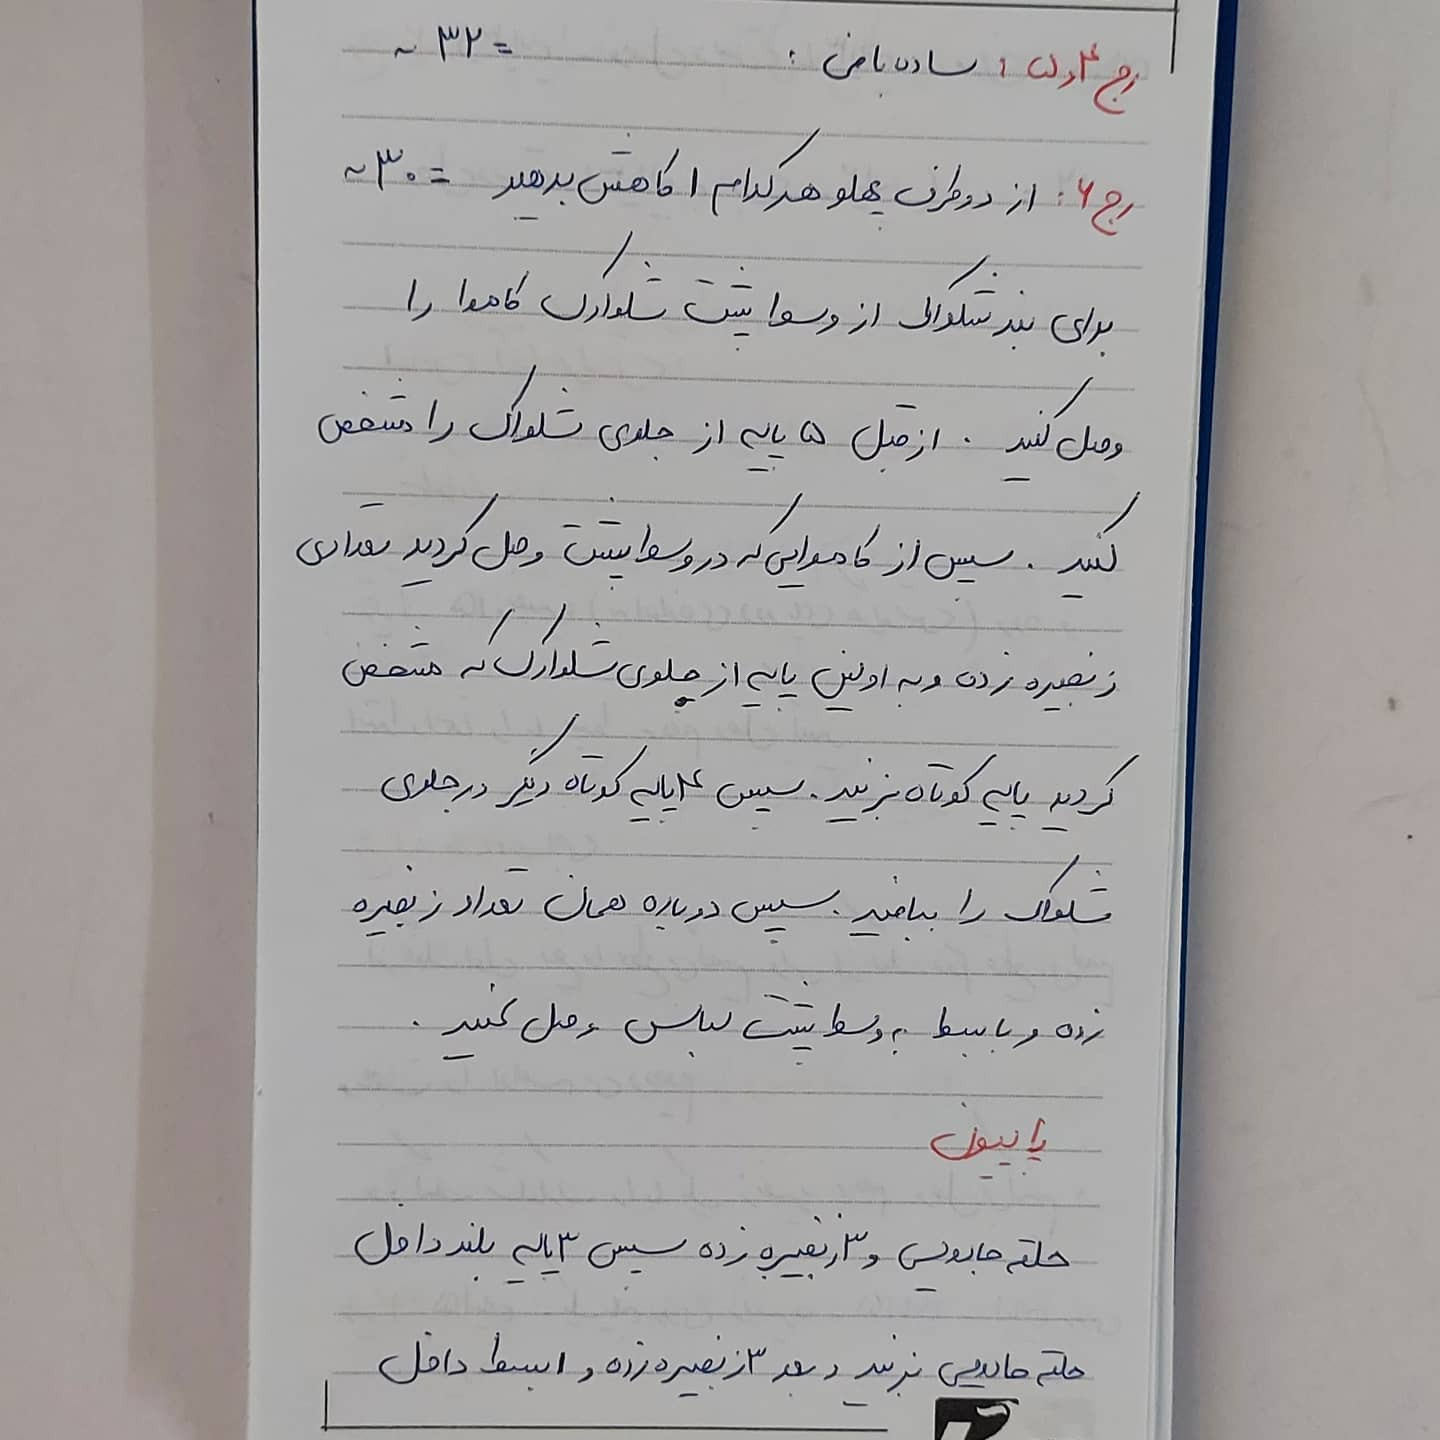 رج ۴ و ۵ : ساده بافی : = ۳۲ ~
رج ۶ : از دو طرف پهلو هر کدام ۱ کاهش بدهید = ۳۰ ~
برای بند شلوارک از وسط پشت شلوارک کاموا را
وصل کنید . از قبل ۵ پایه از جلوی شلوارک را مشخص
کنید . سپس از کاموایی که در وسط پشت وصل کردید تعدادی
زنجیره زده و به اولین پایه از جلوی شلوارک که مشخص
کردید پایه کوتاه بزنید . سپس ۴ پایه کوتاه دیگر در جلوی
شلوارک را ببافید . سپس دوباره همان تعداد زنجیره
زده و با بسط به وسط پشت لباس وصل کنید .
پاپیون
حلقه جادویی و ۳ زنجیره زده سپس ۳ پایه بلند داخل
حلقه جادویی بزنید و بعد ۳ زنجیره زده و ۱ بسط داخل